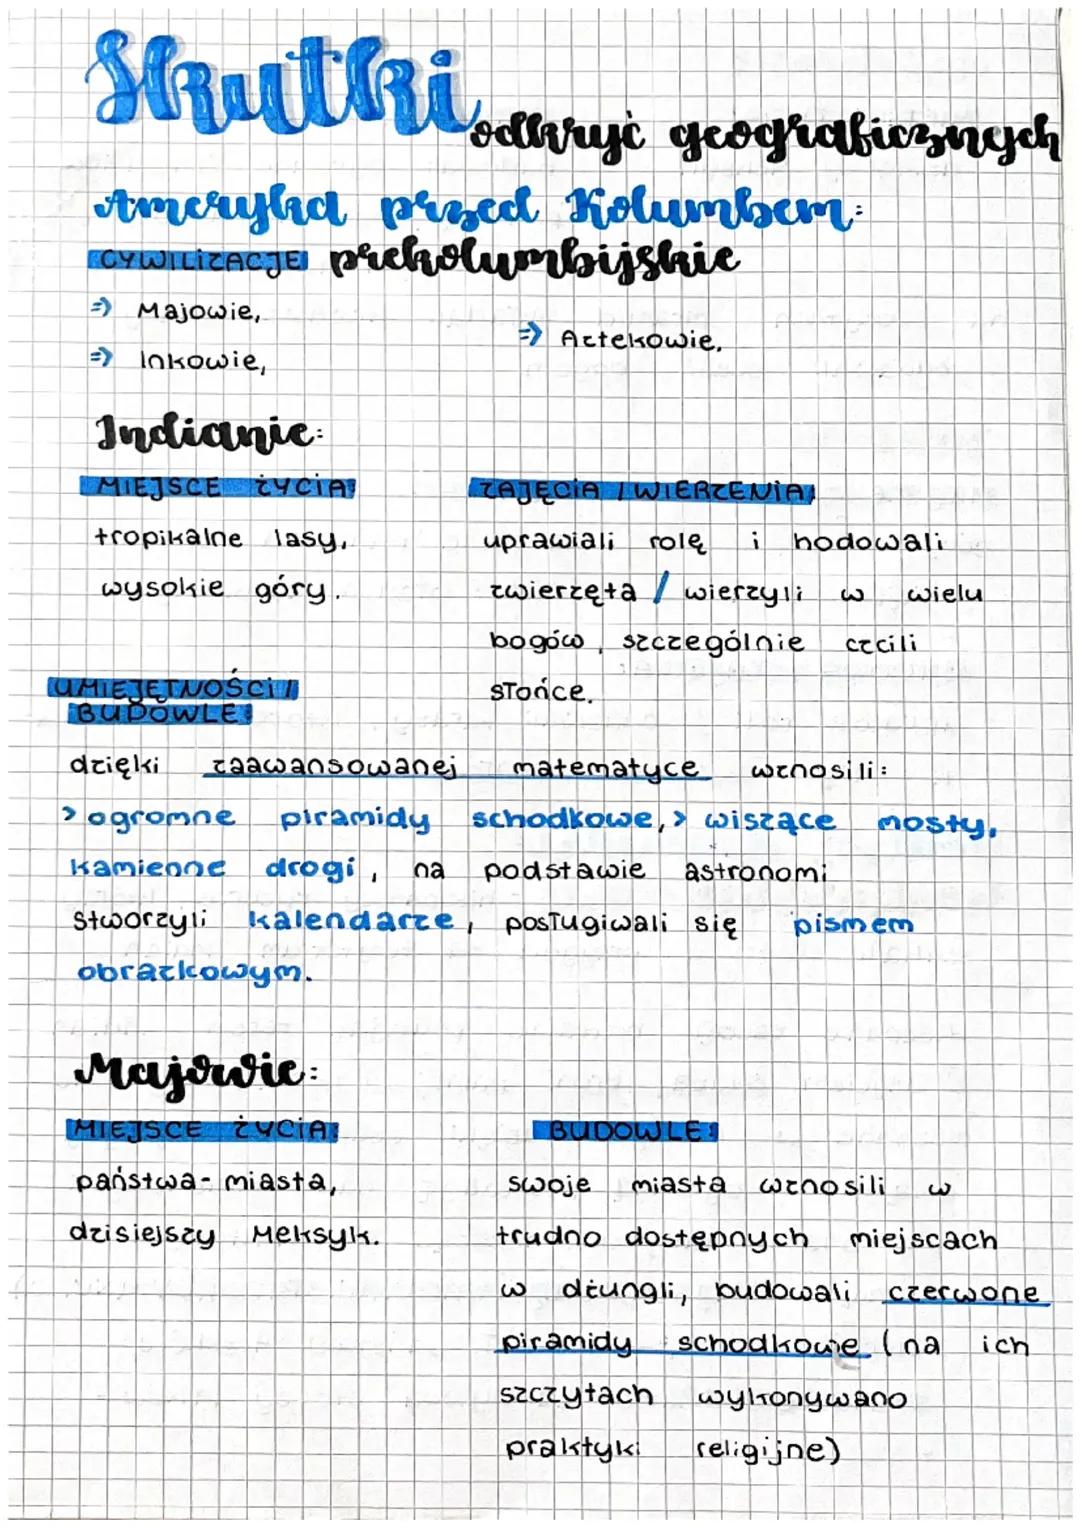 Skutki
odkryć geograficznych
Ameryka przed Kolumbem:
CYWILIZACJE prekolumbijskie
=> Majowie,
=> Aztekowie.
=> Inkowie,
Indianie:
MIEJSCE ŻYCIA:
tropikalne lasy,
wysokie góry.
ZAJĘCIA / WIERZENIA:
uprawiali rolę i hodowali
zwierzęta / wierzyli w wielu
bogów, szczególnie czcili
słońce.
UMIEJĘTNOŚCI /
BUDOWLE:
dzięki zaawansowanej matematyce wznosili:
> ogromne piramidy schodkowe, > wiszące mosty,
kamienne drogi, na podstawie astronomi
stworzyli kalendarze, posługiwali się pismem
obrazkowym.
Majowie:
MIEJSCE ŻYCIA:
państwa-miasta,
dzisiejszy Meksyk.
BUDOWLE:
swoje miasta wznosili w
trudno dostępnych miejscach
w dżungli, budowali czerwone
piramidy schodkowe (na ich
szczytach wykonywano
praktyki religijne)